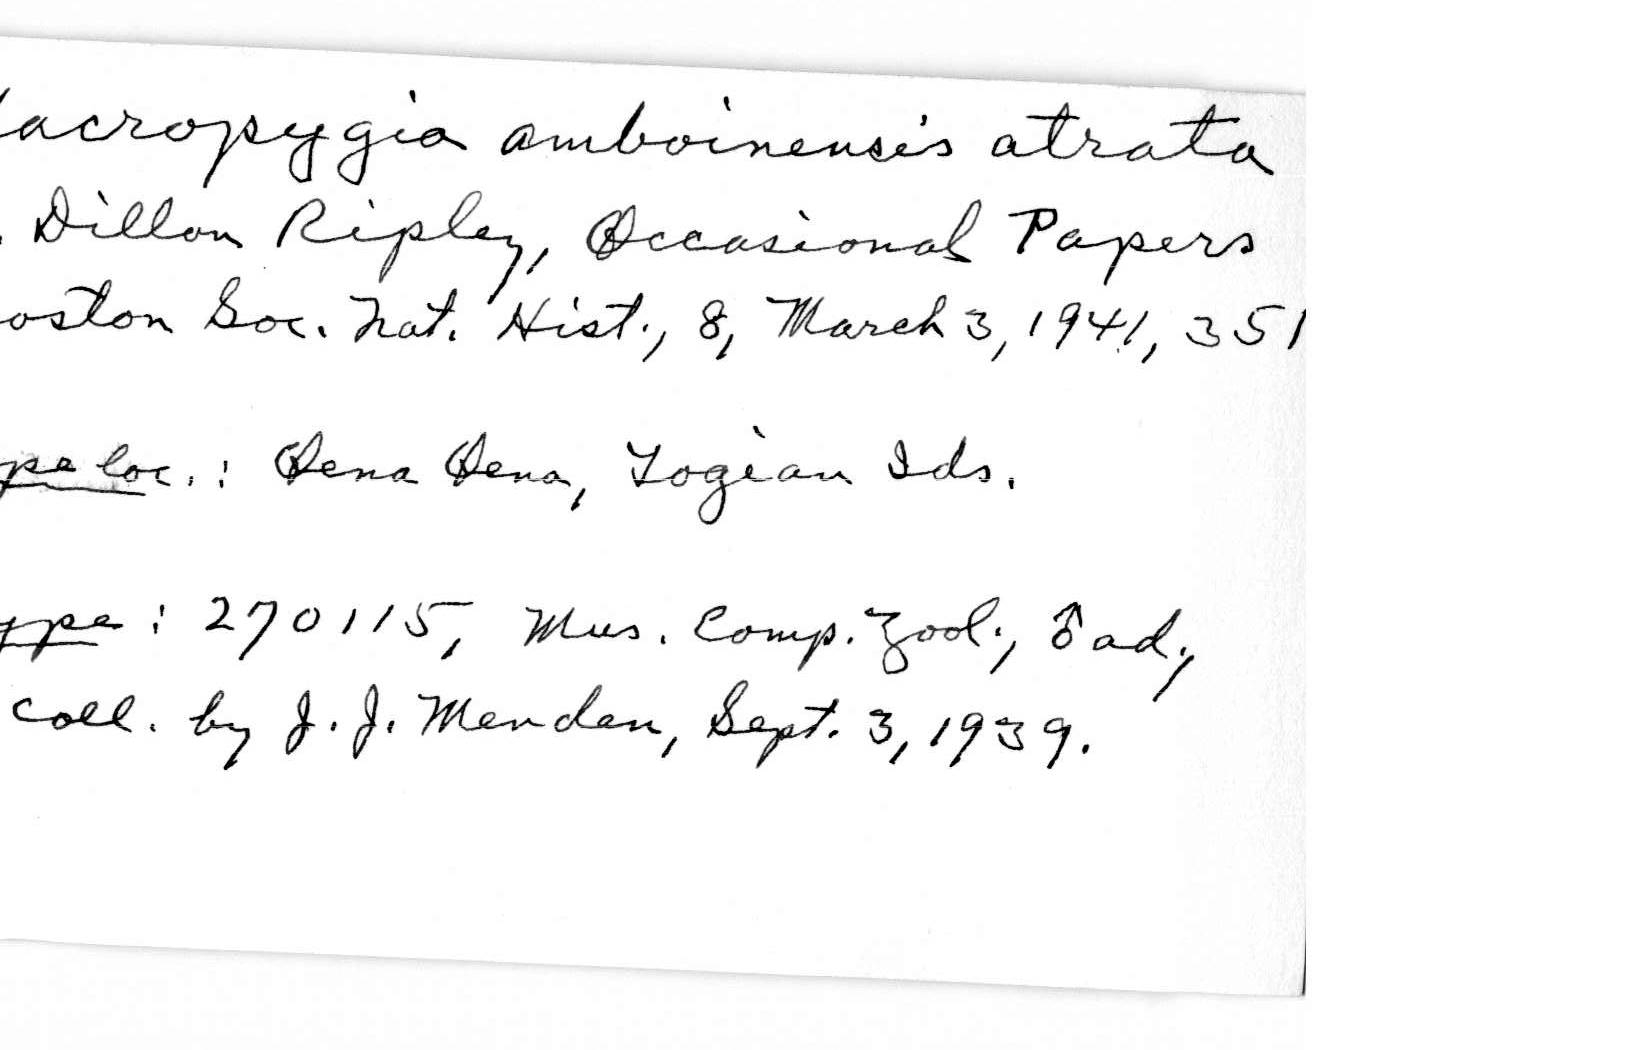 acropygia amboinensis atrata
. Dillon Ripley, Occasional Papers
oston Soc. Nat. Hist., 8, March 3, 1941, 351
pe loc.: Oena Oena, Togian Ids.
ype: 270115, Mus. Comp. Zool., ♂ ad.,
coll. by J. J. Menden, Sept. 3, 1939.